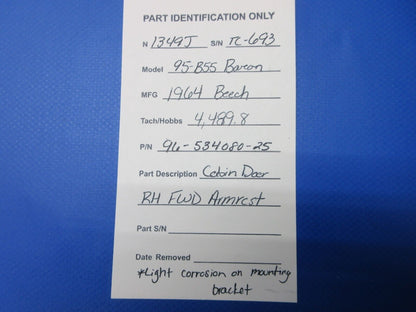 PART IDENTIFICATION ONLY
N 1349J S/N TC-693
Model 95-B55 Baron
MFG 1964 Beech
Tach/Hobbs 4,489.8
P/N 96-534080-25
Part Description Cabin Door
RH FWD Armrest
Part S/N
Date Removed
*Light corrosion on mounting
bracket